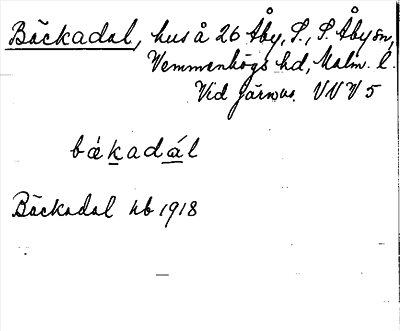 Bäckadal, hus å 26 Åby, S., S. Åby sn,
Vemmenhögs hd, Malm. l.
Vid Järnvs. VNV 5
bákadál
Bäckadal kb 1918